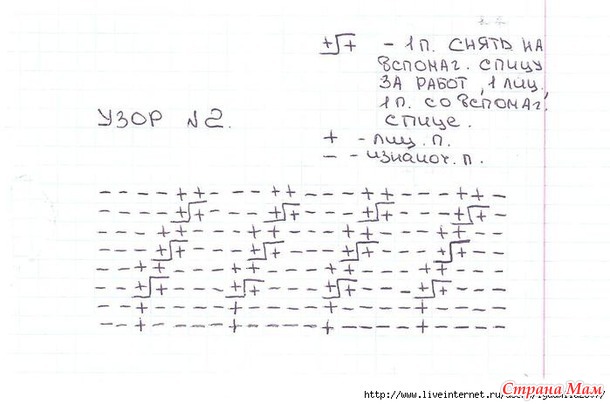 +┌+ - 1 П. СНЯТЬ НА
ВСПОМАГ. СПИЦУ
ЗА РАБОТ, 1 ЛИЦ,
1 П. СО ВСПОМАГ.
СПИЦЕ.
+ - ЛИЦ. П.
- - ИЗНАНОЧ. П.
УЗОР N2.
- - - - + + - - - + + - - - + + - - - + + -
- - - - +┌+ - - - +┌+ - - - +┌+ - - - +┌+ -
- - - + + - - - + + - - - + + - - - + + - -
- - - +┌+ - - - +┌+ - - - +┌+ - - - +┌+ - -
- - + + - - - + + - - - + + - - - + + - - -
- - +┌+ - - - +┌+ - - - +┌+ - - - +┌+ - - -
- - + - - - - + - - - - + - - - - + - - - -
- - + - - - - + - - - - + - - - - + - - - -
Страна Мам
http://www.liveinternet.ru/